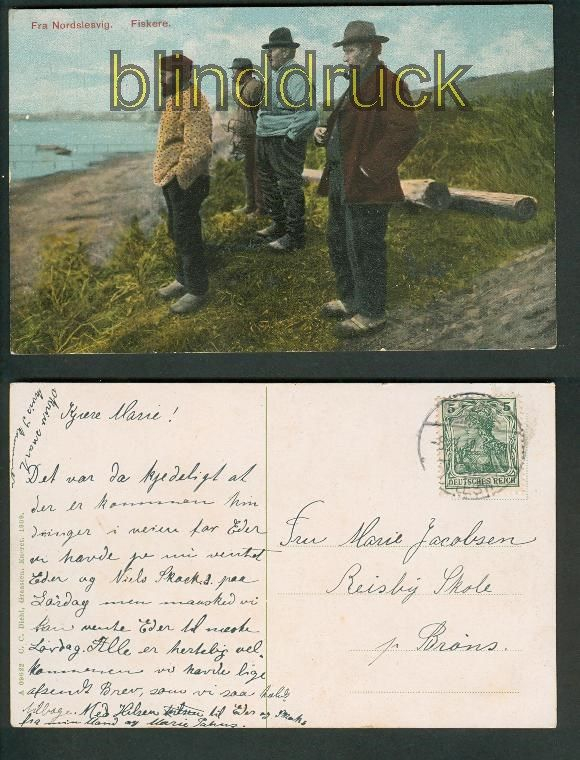 Fra Nordslesvig. Fiskere.
blinddruck
Kjære Marie!
Det var da kjedeligt at
der er kommen hin
dringer i veien for Eder
vi havde jo nu ventet
Eder og Niels paa
Lørdag men maaske vi
kan vente Eder til næste
Lørdag. Alle er hertelig vel-
kommenen vi havde lige
afsendt Brev, som vi saa holdt
tilbage. Med Hilsen til Eder og
fra min Mand og Marie
5 5
DEUTSCHES REICH
Fru Marie Jacobsen
Reisby Skole
p. Brøns.
A 09622 C. C. Biehl, Graasten. Eneret. 1909.